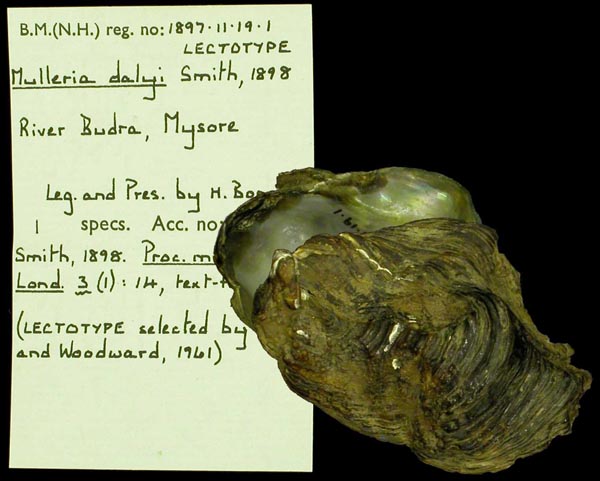 B.M.(N.H.) reg. no: 1897·11·19·1
LECTOTYPE
Mulleria dalyi Smith, 1898
River Budra, Mysore
Leg. and Pres. by H.
1 specs. Acc. no:
Smith, 1898. Proc.
Lond. 3 (1): 14,
(LECTOTYPE selected by
and Woodward, 1961)